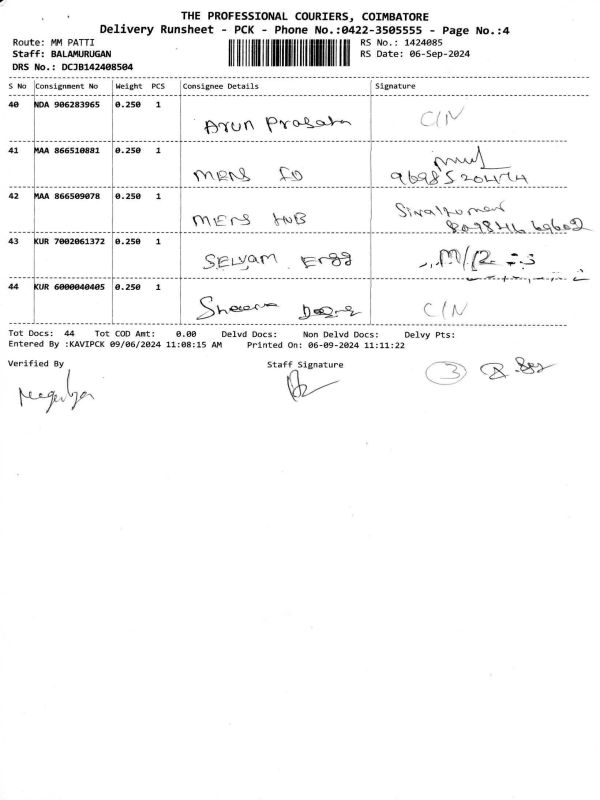 THE PROFESSIONAL COURIERS, COIMBATORE
Delivery Runsheet - PCK - Phone No.:0422-3505555 - Page No.:4
Route: MM PATTI
RS No.: 1424085
Staff: BALAMURUGAN
RS Date: 06-Sep-2024
DRS No.: DCJB142408504
S No Consignment No Weight PCS Consignee Details Signature
40 NDA 906283965 0.250 1
Arun Prasath C/N
41 MAA 866510881 0.250 1
MENS
42 MAA 866509078 0.250 1
MENS HUB
43 KUR 7002061372 0.250 1
SELVAM Engg
44 KUR 6000040405 0.250 1
C/N
Tot Docs: 44 Tot COD Amt: 0.00 Delvd Docs: Non Delvd Docs: Delvy Pts:
Entered By :KAVIPCK 09/06/2024 11:08:15 AM Printed On: 06-09-2024 11:11:22
Verified By Staff Signature
3